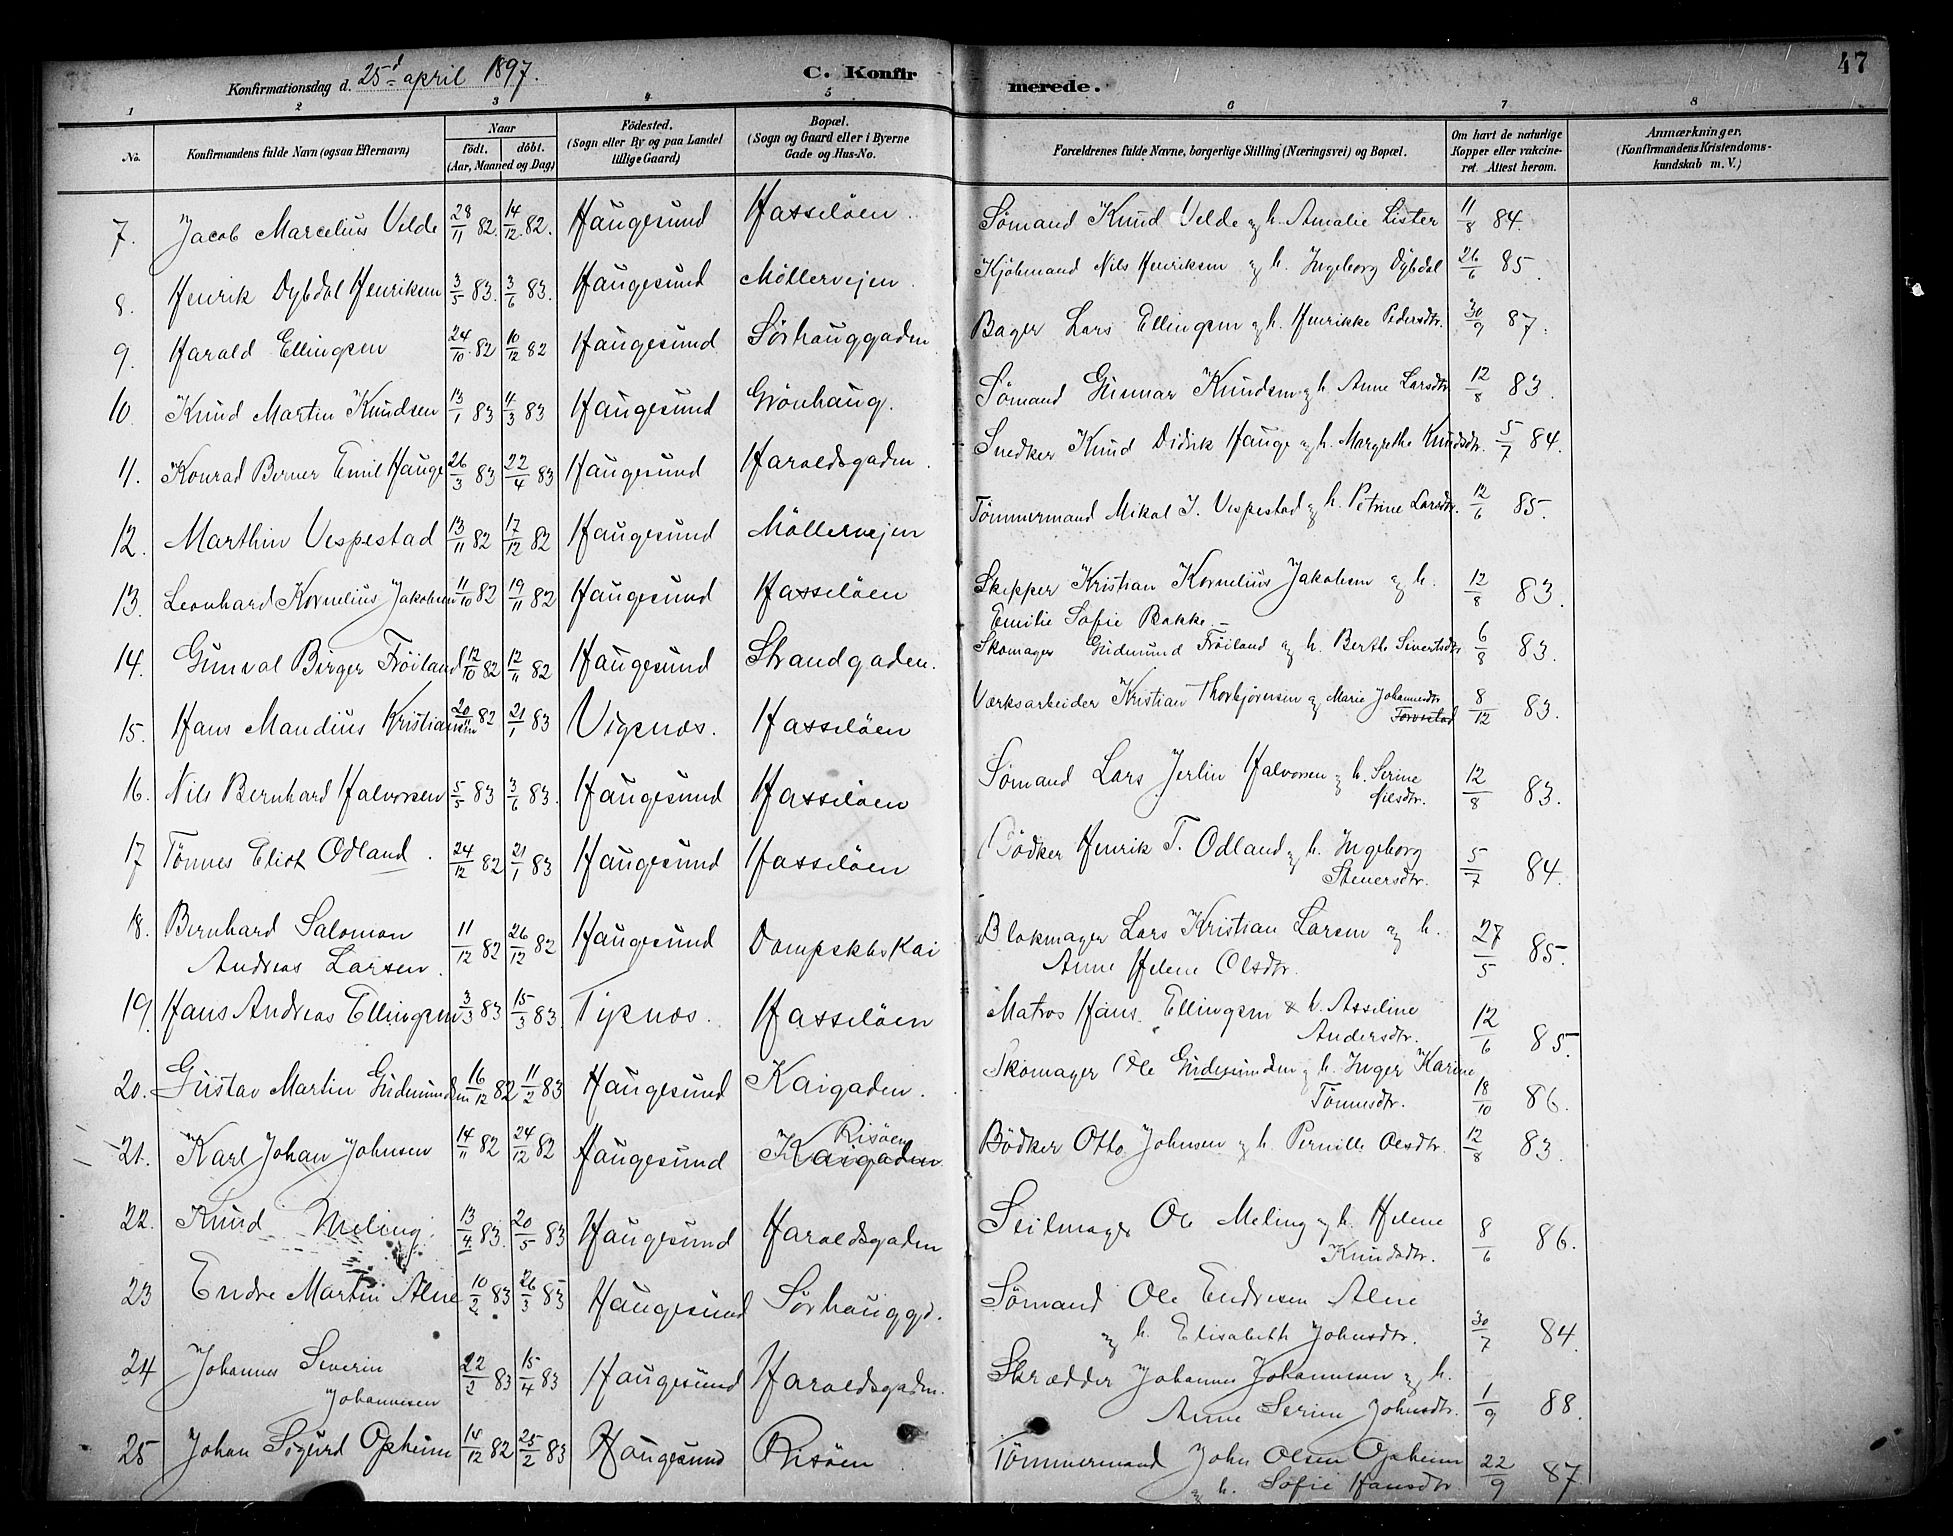 47
Konfirmationsdag d. 25d april 1897.
C. Konfirmerede.
1 2 3 4 5 6 7 8
No. Konfirmandens fulde Navn (ogsaa Efternavn) Naar født. døbt. (Aar, Maaned og Dag) Fødested. (Sogn eller By og paa Landet tillige Gaard) Bopæl. (Sogn og Gaard eller i Byerne Gade og Hus-No. Forældrenes fulde Navne, borgerlige Stilling (Næringsvei) og Bopæl. Om havt de naturlige Kopper eller vakcineret. Attest herom. Anmærkninger, (Konfirmandens Kristendomskundskab m. V.)
7. Jacob Marcelius Velde 28/11 82. 14/12 82. Haugesund Hasseløen. Sømand Knud Velde og h. Amalie Lister 11/8 84.
8. Henrik Dybdal Henriksen 3/5 83. 3/6 83. Haugesund Møllervejen. Kjøbmand Nils Henriksen og h. Ingeborg Dybdal 26/6 85.
9. Harald Ellingsen 24/10 82 10/12 82 Haugesund Sørhauggaden Bager Lars Ellingsen og h. Henrikke Pedersdtr. 30/9 87.
10. Knud Martin Knudsen 13/1 83 4/3 83 Haugesund Grønhaug. Sømand Gunnar Knudsen og h. Anne Larsdtr 12/8 83.
11. Konrad Berner Emil Hauge 26/3 83 22/4 83 Haugesund Haraldsgaden. Snedker Knud Didrik Hauge og h. Margrethe Knudsdtr. 5/7 84.
12. Marthin Vespestad 13/11 82 17/12 82 Haugesund Møllervejen Tømmermand Mikal J. Vespestad og h. Petrine Larsdtr. 12/6 85.
13. Leonhard Kornelius Jakobsen 11/10 82 19/11 82 Haugesund Hasseløen Skipper Kristian Kornelius Jakobsen og h. 12/8 83.
Emilie Sofie Bakke.
14. Gunval Birger Frøiland 12/10 82 12/11 82 Haugesund Strandgaden. Skomager Gudmund Frøiland og h. Berthe Sivertsdtr 6/8 83.
15. Hans Mandius Kristiansen 20/11 82 21/1 83 Vigsnæs. Hasseløen Værksarbeider Kristian Thorbjørnsen og Marie Johannesdtr 8/12 83.
Torvestad
16. Nils Bernhard Halvorsen 5/5 83 3/6 83. Haugesund Hasseløen Sømand Lars Jerlin Halvorsen og h. Serine 12/8 83.
Nilsdtr.
17 Tønnes Eliot Odland. 24/12 82 21/1 83 Haugesund Hasseløen Bødker Henrik T. Odland og h. Ingeborg 5/7 84.
Steuersdtr.
18. Bernhard Salomon 11/12 82 26/12 82 Haugesund Dampskbs Kai Blokmager Lars Kristian Larsen og h. 27/5 85.
Andreas Larsen. Anne Helene Olsdtr.
19. Hans Andreas Ellingsen 3/3 83 15/3 83. Tysnæs. Hasseløen Matros Hans Ellingsen & h. Asseline 12/6 85.
Andersdtr.
20. Gustav Martin Gudmundsen 16/12 82 11/2 83 Haugesund Kaigaden. Skomager Ole Gudmundsen og h. Inger Karine
Tønnesdtr. 18/10 86.
21. Karl Johan Johnsen 14/11 82 24/12 82 Haugesund Risøen Kaigaden Bødker Otto Johnsen og h Pernille Olsdtr. 12/8 83.
22. Knud Meling. 13/4 83. 20/5 83 Haugesund Haraldsgaden Seilmager Ole Meling og h. Helene 8/6 86.
Knudsdtr.
23 Endre Martin Alne 10/2 83 26/3 83 Haugesund Sørhauggd. Sømand Ole Endresen Alne
og h. Elisabeth Johnsdtr. 30/7 84.
24 Johannes Severin 22/2 83 15/4 83 Haugesund Haraldsgaden. Skrædder Johannes Johannesen og h.
Johannesen Anne Serine Johnsdtr. 1/9 88.
25 Johan Sigurd Opheim 14/12 82 25/2 83 Haugesund Risøen Tømmermand John Olsen Opheim 22/9 87
og h. Sofie Hansdtr.